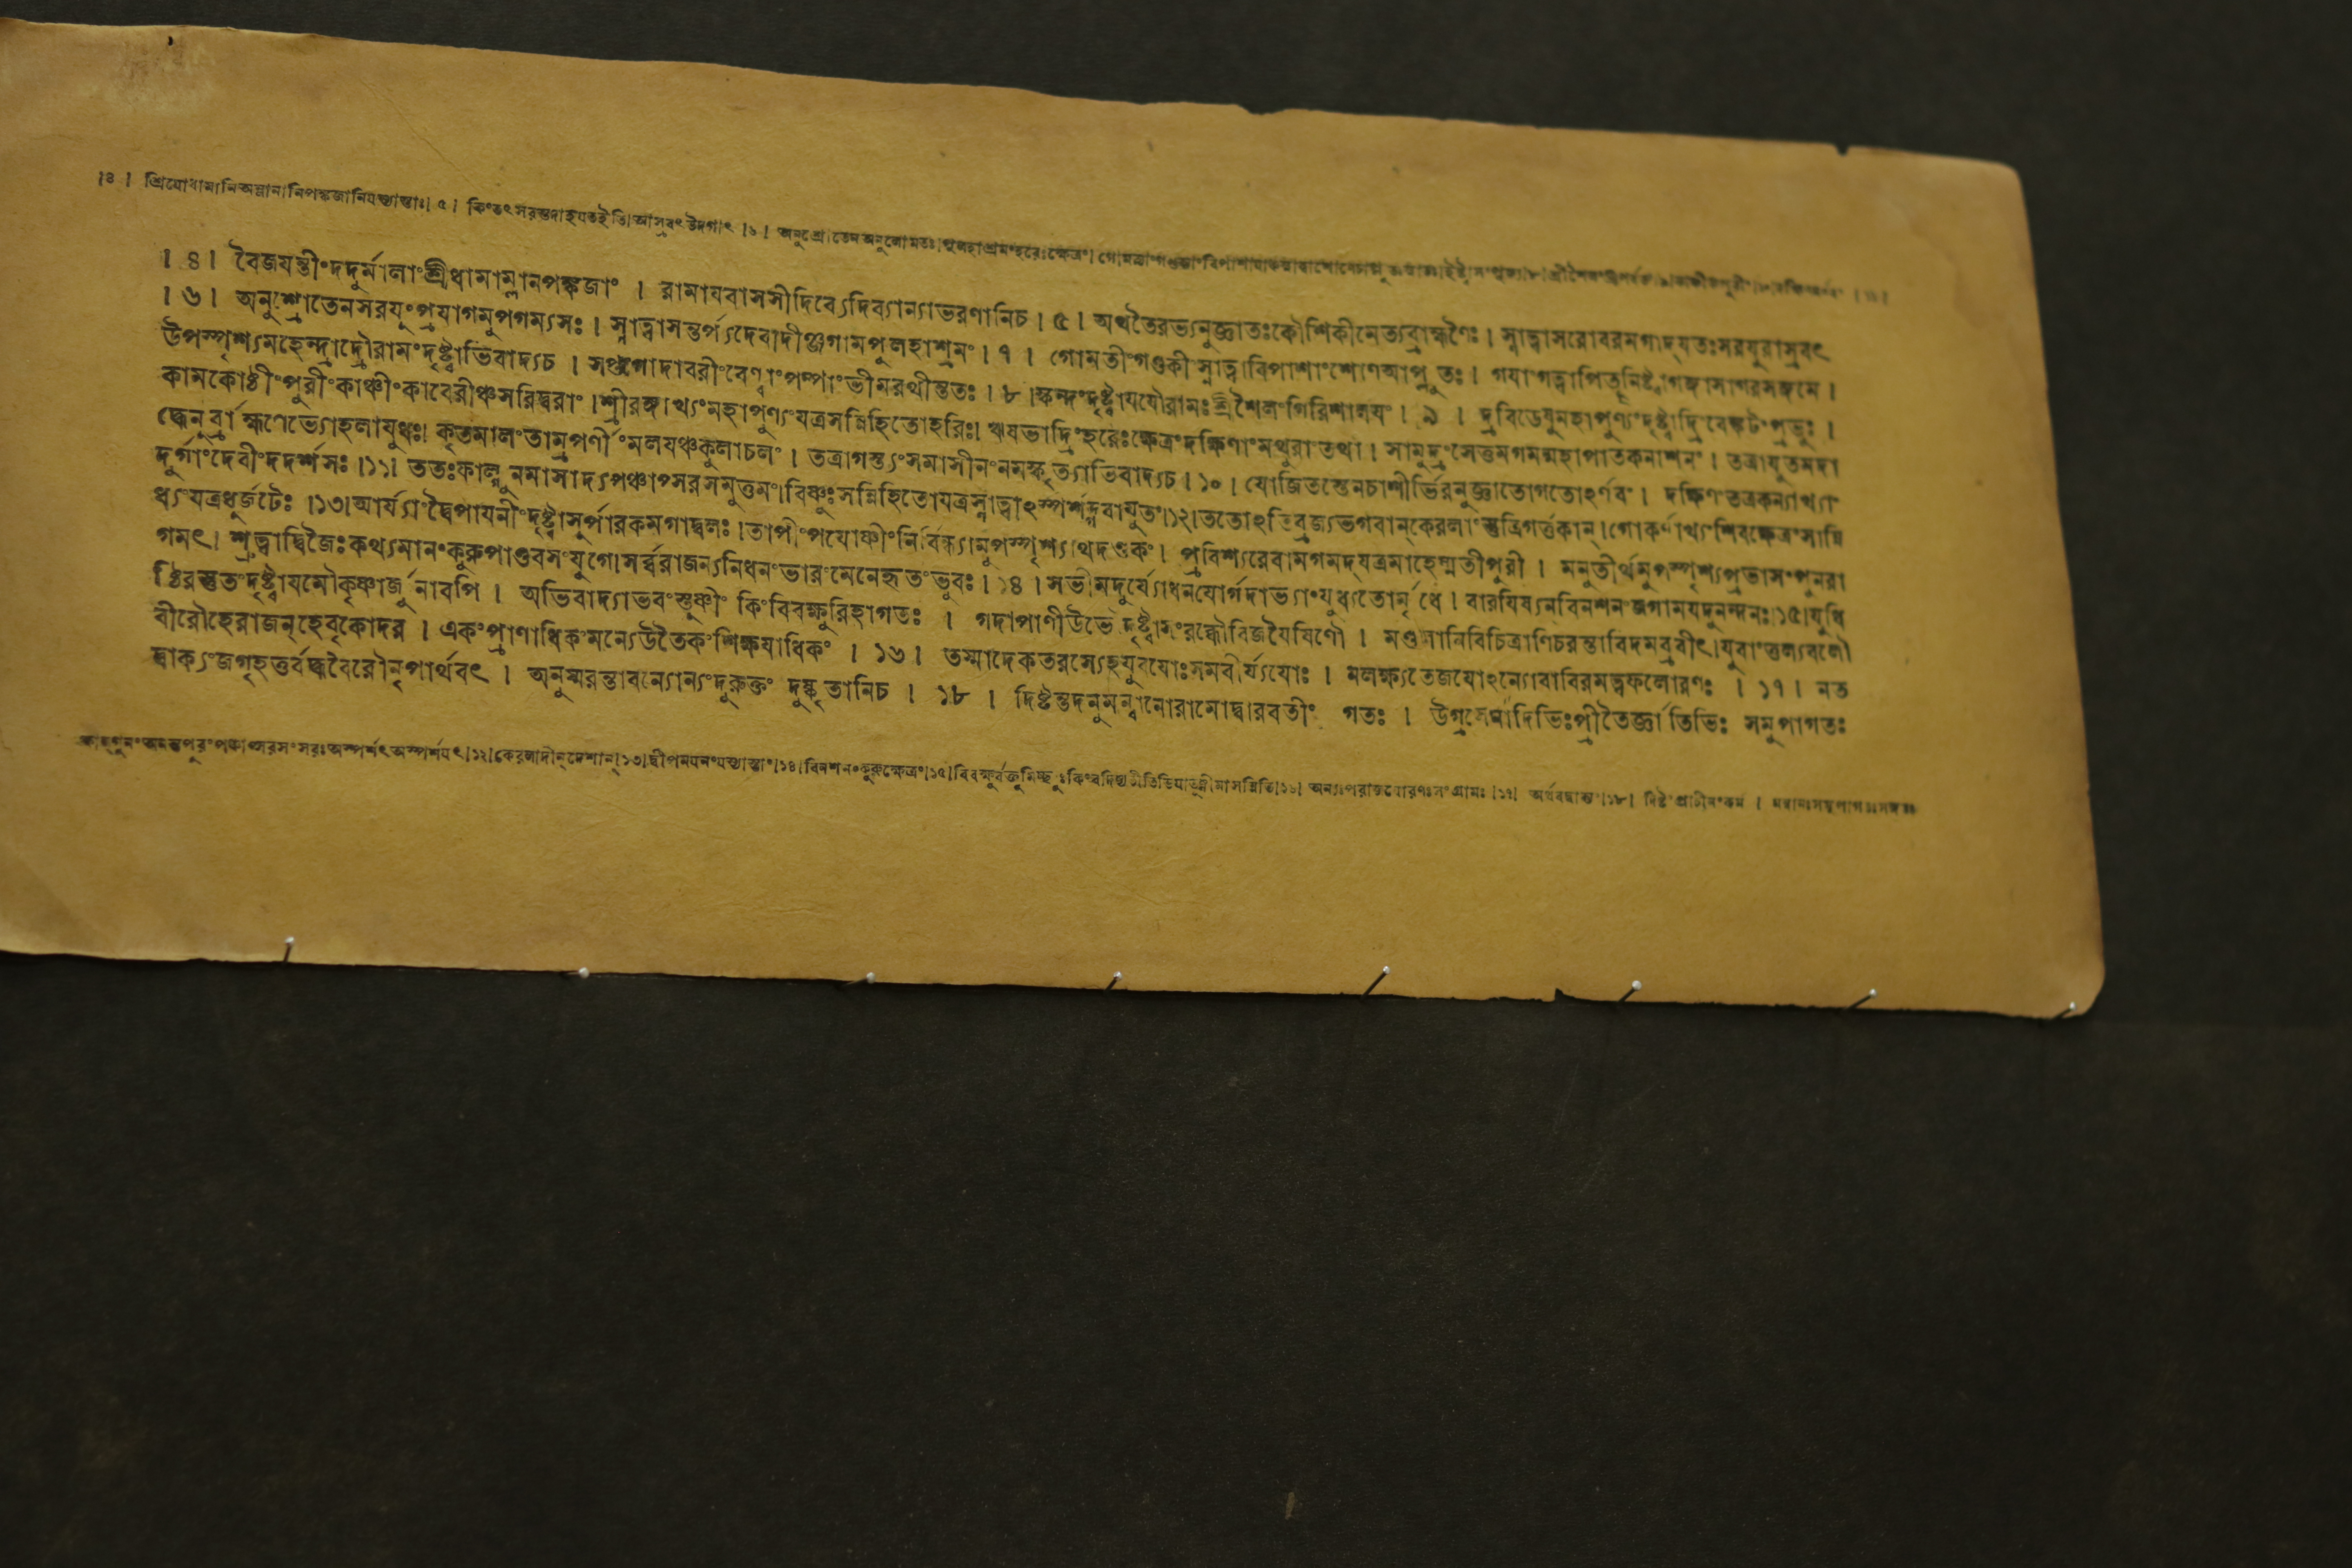 ।৪। শ্রিযোধামানিঅম্লানানিপঙ্কজানিযস্যাস্তাঃ। ৫। কিংতৎসরস্তদাহযতইতি।আসুবৎউদগাৎ ।৬। অনুশ্রোতেনঅনুলোমতঃ।পুলহাশ্রমংহরেঃক্ষেত্রং।
। ৪। বৈজযন্তীংদদুর্মালাংশ্রীধামাম্লানপঙ্কজাং । রামাযবাসসীদিব্যেদিব্যান্যাভরণানিচ। ৫। অথতৈরভ্যনুজ্ঞাতঃকৌশিকীমেত্যব্রাহ্মণৈঃ। স্নাত্বাসরোবরমগাদ্যতঃসরযুরাস্রবৎ
। ৬। অনুশ্রোতেনসরযুংপ্রযাগমুপগম্যসঃ। স্নাত্বাসন্তর্প্যদেবাদীঞ্জগামপুলহাশ্রমং। ৭ । গোমতীংগণ্ডকীংস্নাত্বাবিপাশাংশোণআপ্লুতঃ। গযাংগত্বাপিতৄনিষ্ট্বাগঙ্গাসাগরসঙ্গমে।
উপস্পৃশ্যমহেন্দ্রাদ্রৌরামংদৃষ্ট্বাভিবাদ্যচ । সপ্তগোদাবরীংবেণ্বাংপম্পাংভীমরথীন্ততঃ। ৮।স্কন্দংদৃষ্ট্বাযযৌরামঃশ্রীশৈলংগিরিশালযং। ৯ । দ্রবিডেষুমহাপুণ্যংদৃষ্ট্বাদ্রিংবেঙ্কটংপ্রভুঃ।
কামকোষ্ঠীংপুরীংকাঞ্চীংকাবেরীঞ্চসরিদ্বরাং।শ্রীরঙ্গাখ্যংমহাপুণ্যংযত্রসন্নিহিতোহরিঃ। ঋষভাদ্রিংহরেঃক্ষেত্রংদক্ষিণাংমথুরাংতথা। সামুদ্রংসেতুমগমন্মহাপাতকনাশনং। তত্রাযুতমদা
দ্ধেনুর্ব্রাহ্মণেভ্যোহলাযুধঃ। কৃতমালাংতাম্রপর্ণীংমলযঞ্চকুলাচলং । তত্রাগস্ত্যংসমাসীনংনমস্কৃত্যাভিবাদ্যচ। ১০। যোজিতস্তেনচাশীর্ভিরনুজ্ঞাতোগতোঽর্ণবং। দক্ষিণংতত্রকন্যাখ্যাং
দুর্গাংদেবীংদদর্শসঃ।১১। ততঃফাল্গুনমাসাদ্যপঞ্চাপ্সরসমুত্তমং।বিষ্ণুঃসন্নিহিতোযত্রস্নাত্বাঽস্পর্শদ্গবাযুতং।১২।ততোঽভিব্রজ্যভগবান্কেরলাংস্তুত্রিগর্ত্তকান্।গোকর্ণাখ্যংশিবক্ষেত্রংসান্নি
ধ্যংযত্রধুর্জটেঃ ।১৩।আর্য্যাংদ্বৈপাযনীংদৃষ্ট্বাসুর্পারকমগাদ্বলঃ।তাপীংপযোষ্ণীংনির্বিন্ধ্যামুপস্পৃশ্যাথদণ্ডকং। প্রবিশ্যরেবামগমদ্যত্রমাহেষ্মতীপুরী । মনুতীর্থমুপস্পৃশ্যপ্রভাসংপুনরা
গমৎ। শ্রুত্বাদ্বিজৈঃকথ্যমানংকুরুপাণ্ডবসংযুগে।সর্ব্বরাজন্যনিধনংভারংমেনেহৃতংভুবঃ। ১৪।সভীমদুর্য্যোধনযোর্গদাভ্যাংযুধ্যতোর্মৃধে। বারযিষ্যন্বিনশনংজগামযদুনন্দনঃ।১৫।যুধি
ষ্ঠিরস্তুতংদৃষ্ট্বাযমৌকৃষ্ণার্জুনাবপি । অভিবাদ্যাভবংস্তুষ্ণীং কিংবিবক্ষুরিহাগতঃ । গদাপাণীউভৌদৃষ্ট্বাসংরব্ধৌবিজযৈষিণৌ । মণ্ডলানিবিচিত্রাণিচরন্তাবিদমব্রবীৎ।যুবাংতুল্যবলৌ
বীরৌহেরাজন্হেবৃকোদর । একংপ্রাণাধিকংমন্যেউতৈকংশিক্ষযাধিকং । ১৬। তস্মাদেকতরস্যেহযুবযোঃসমবীর্য্যযোঃ । নলক্ষ্যতেজযোঽন্যোবাবিরমত্বফলোরণঃ । ১৭। নত
দ্বাক্যংজগৃহতুর্বদ্ধবৈরৌনৃপার্থবৎ । অনুস্মরন্তাবন্যোন্যংদুরুক্তং দুষ্কৃতানিচ । ১৮ । দিষ্টন্তদনুমন্বানোরামোদ্বারবতীং গতঃ । উগ্রসেনাদিভিঃপ্রীতৈর্জ্ঞাতিভিঃ সমুপাগতঃ
অস্পর্শৎঅস্পর্শযৎ।১২।কেরলাদীন্দেশান্।১৩।দ্বীপমযনংযস্যাস্তাং।১৪।বিনশনংকুরুক্ষেত্রং।১৫।বিবক্ষুর্বক্তুমিচ্ছুঃ ।১৬। ।১৭। ।১৮।